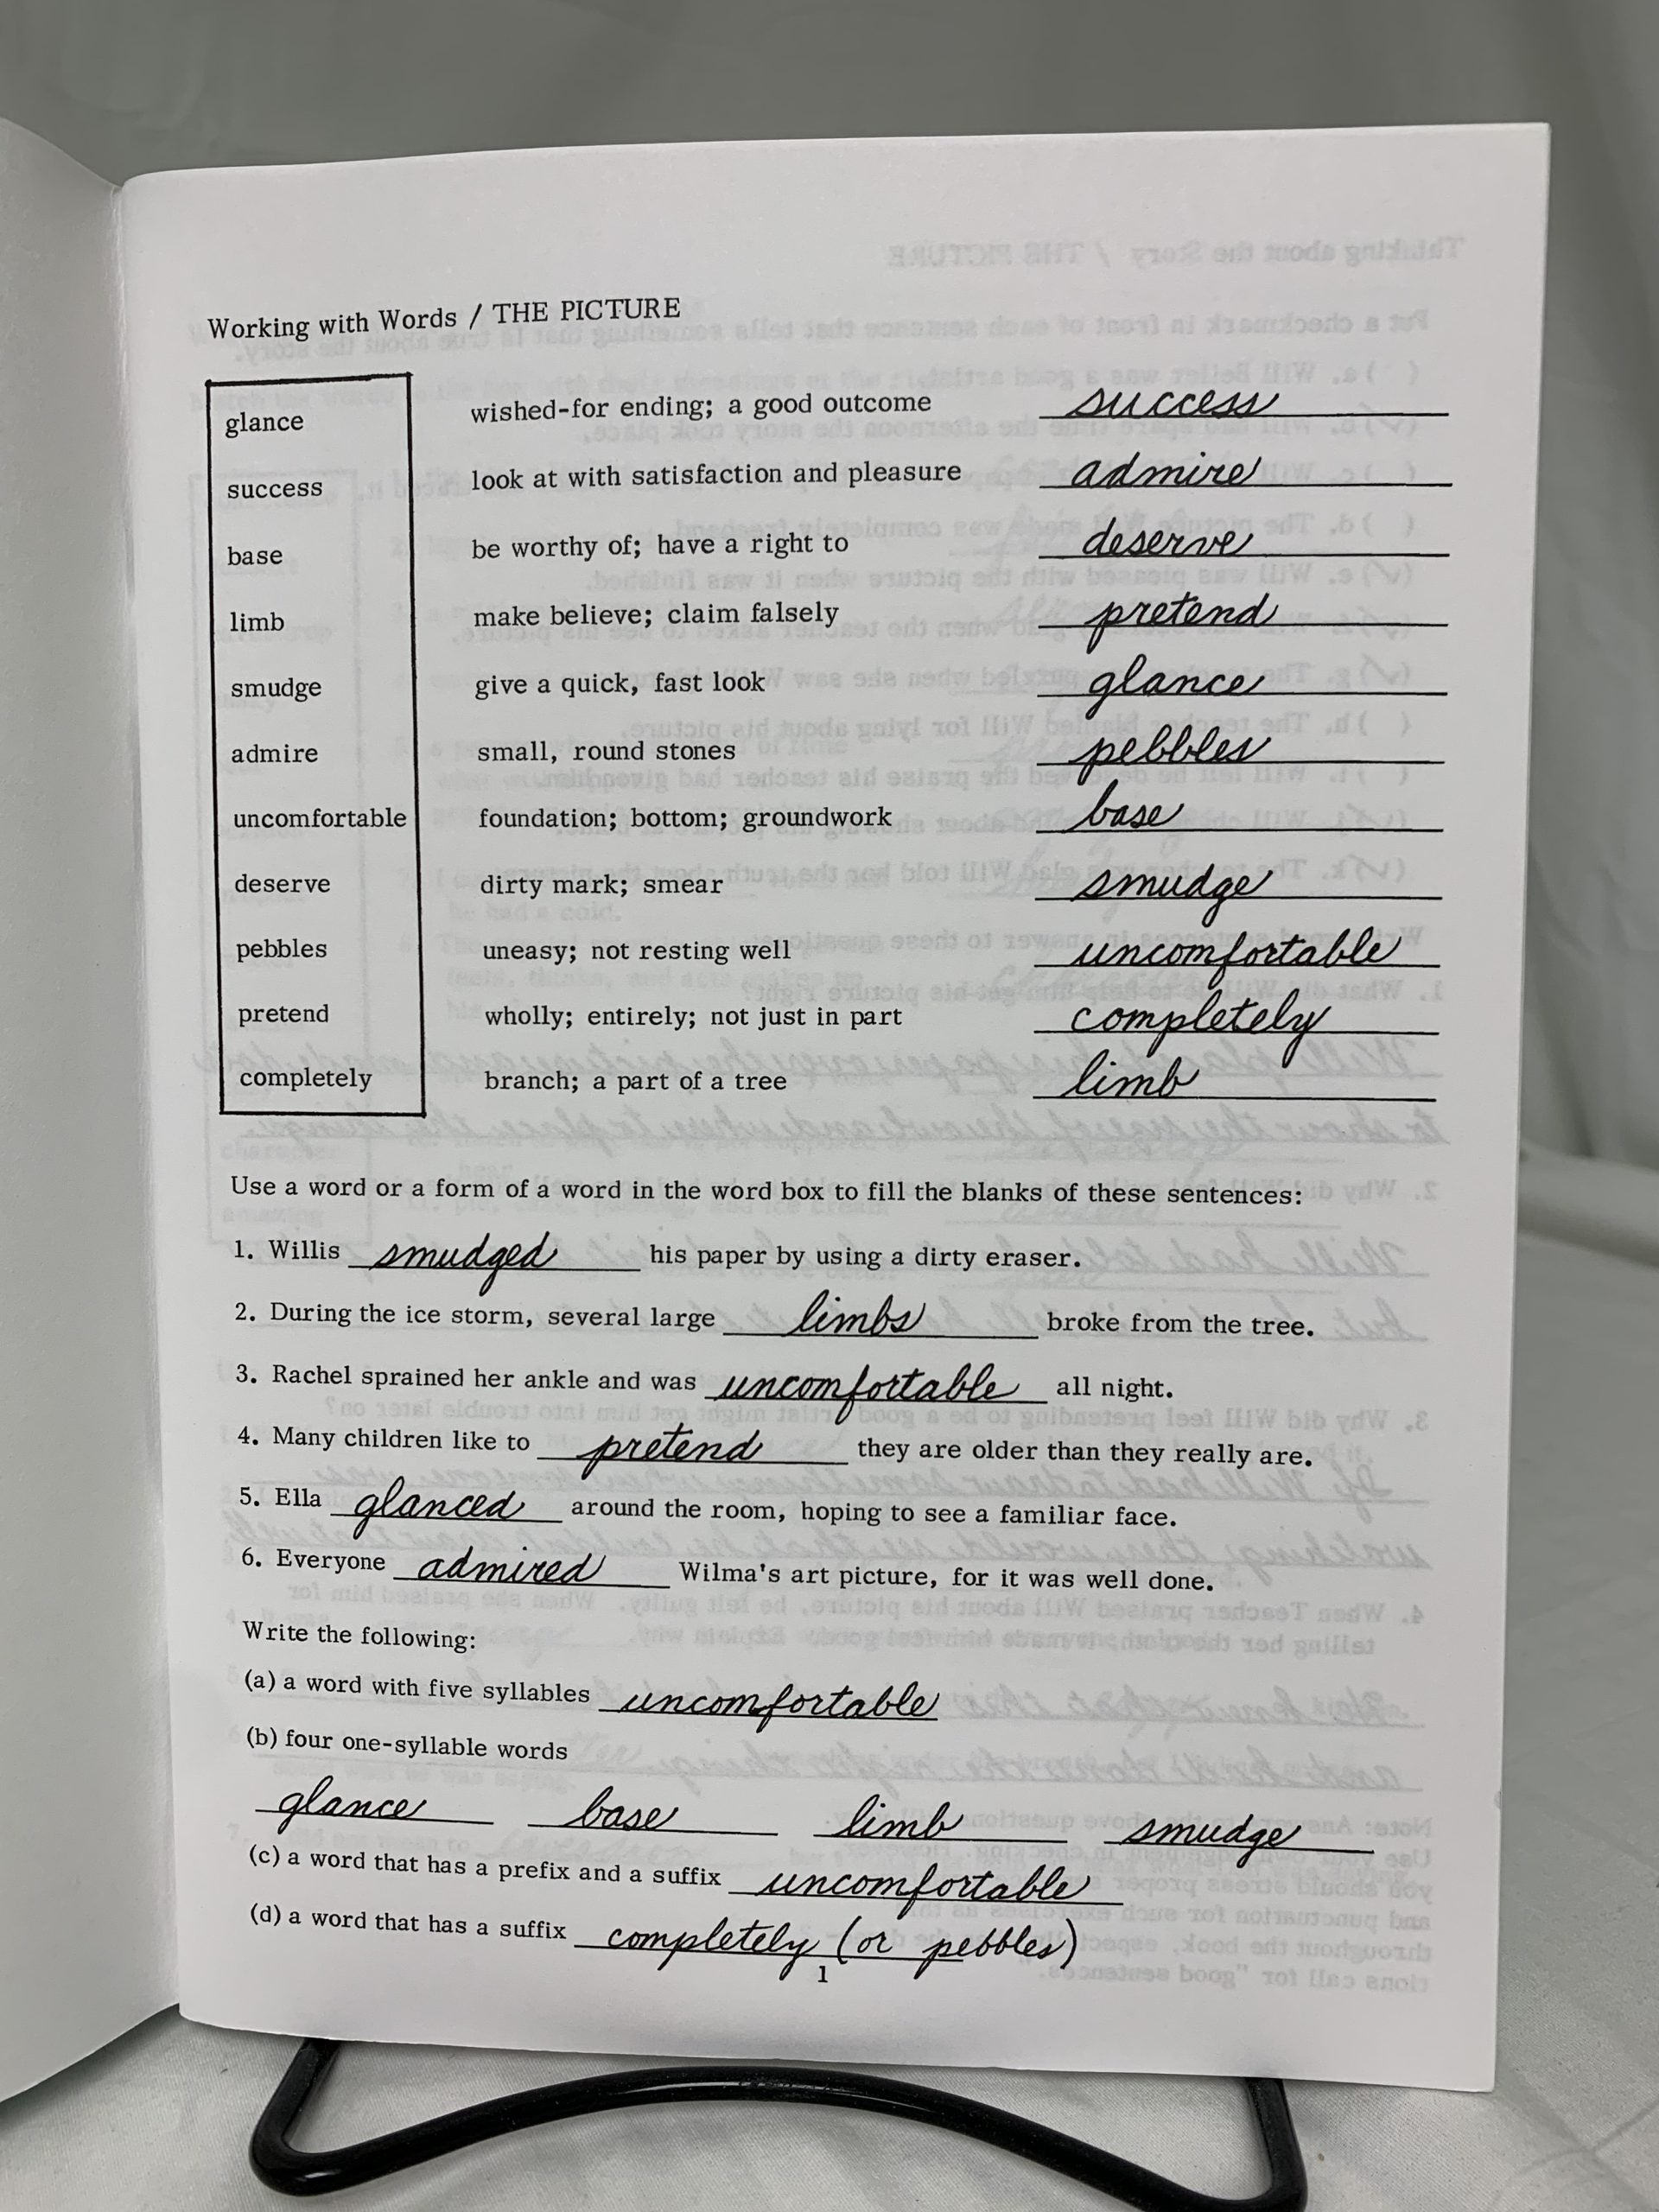 Working with Words / THE PICTURE
glance wished-for ending; a good outcome success
success look at with satisfaction and pleasure admire
base be worthy of; have a right to deserve
limb make believe; claim falsely pretend
smudge give a quick, fast look glance
admire small, round stones pebbles
uncomfortable foundation; bottom; groundwork base
deserve dirty mark; smear smudge
pebbles uneasy; not resting well uncomfortable
pretend wholly; entirely; not just in part completely
completely branch; a part of a tree limb
Use a word or a form of a word in the word box to fill the blanks of these sentences:
1. Willis smudged his paper by using a dirty eraser.
2. During the ice storm, several large limbs broke from the tree.
3. Rachel sprained her ankle and was uncomfortable all night.
4. Many children like to pretend they are older than they really are.
5. Ella glanced around the room, hoping to see a familiar face.
6. Everyone admired Wilma's art picture, for it was well done.
Write the following:
(a) a word with five syllables uncomfortable
(b) four one-syllable words
glance base limb smudge
(c) a word that has a prefix and a suffix uncomfortable
(d) a word that has a suffix completely (or pebbles)
1